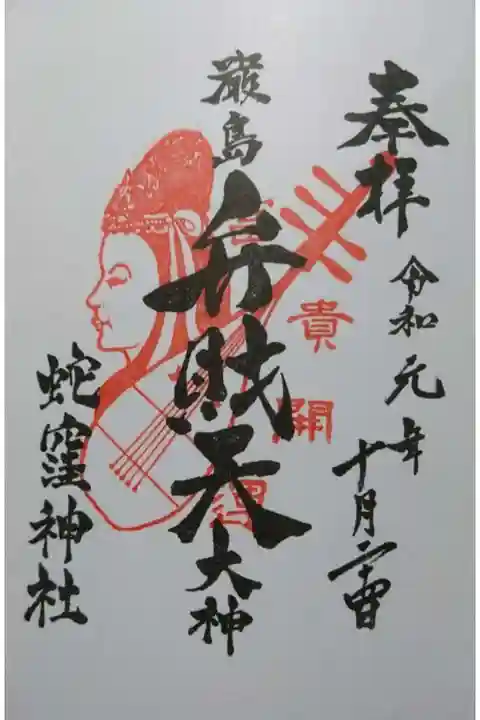 奉拝
令和元年
十月
貴
開
運
嚴島
弁財天
大神
蛇窪神社